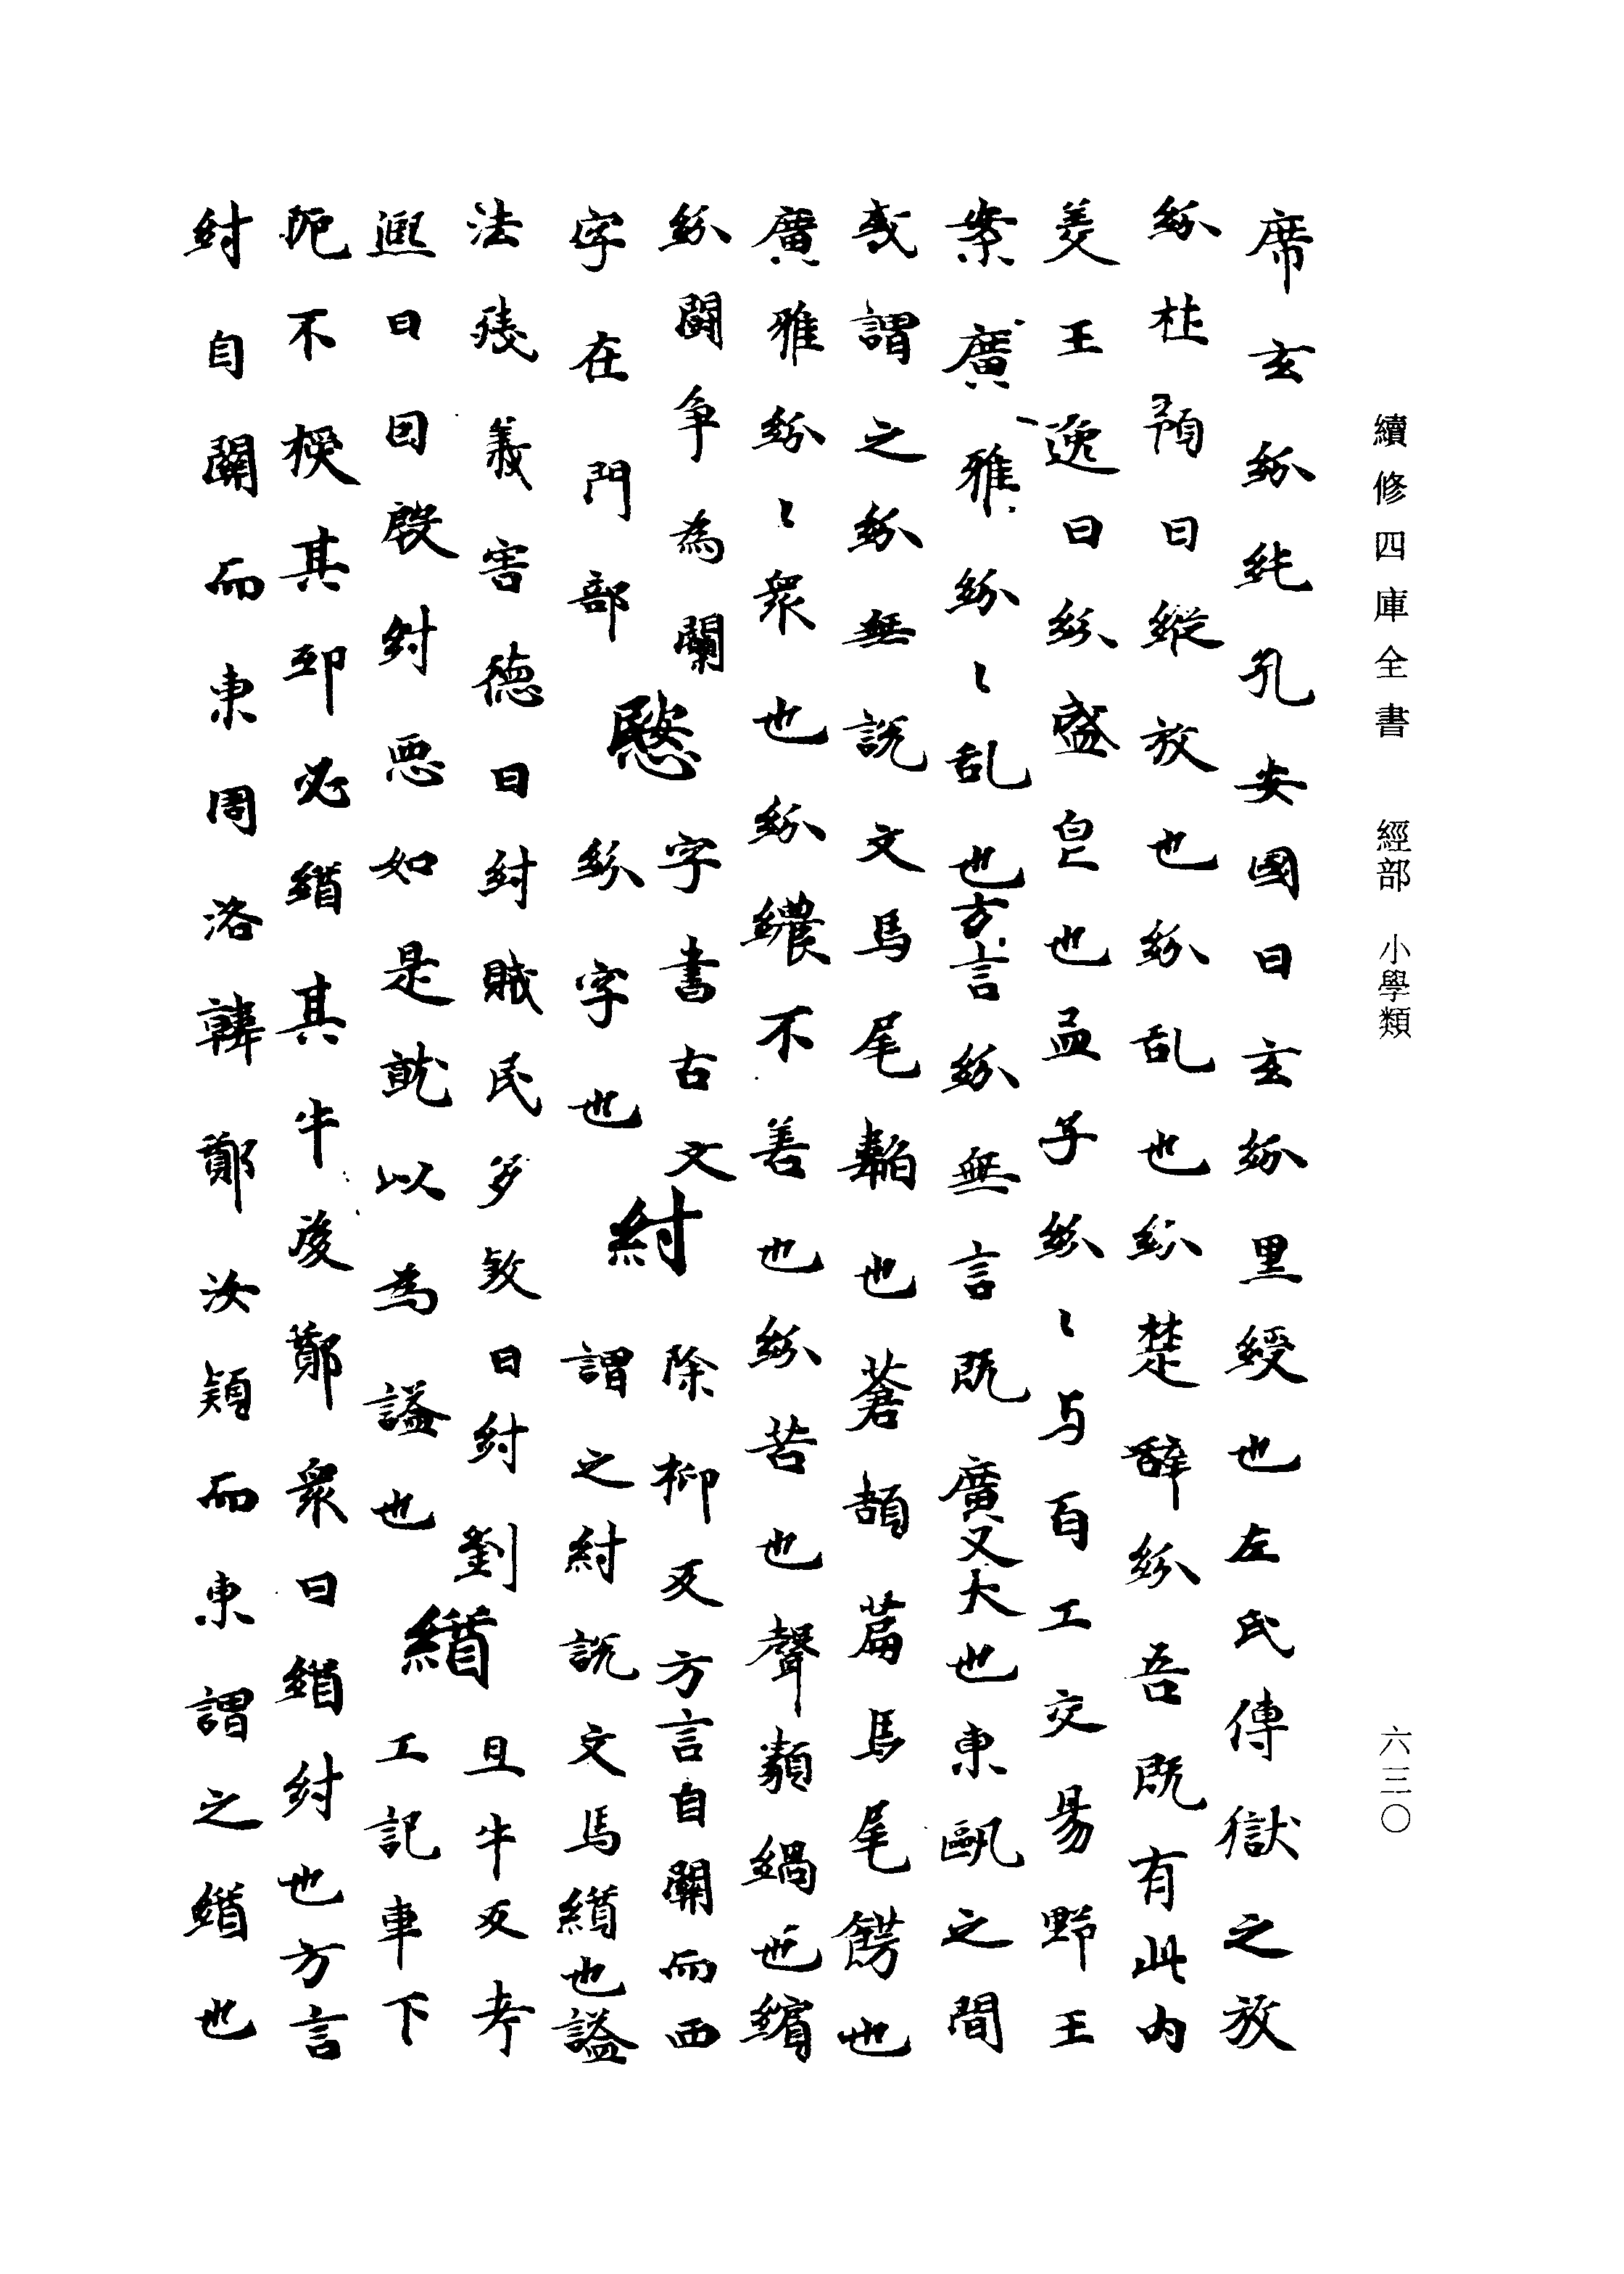 續修四庫全書 經部 小學類
六三〇
席玄紛純孔安國曰玄紛黑綬也左氏傳獄之放
紛杜預曰縱放也紛乱也紛楚辞紛吾既有此内
羙王王逸曰紛盛皃也孟子紛〻与百工交易野王
案廣雅紛〻乱也方言紛無言既廣又大也東甌之間
或謂之紛無說文馬尾韜也蒼頡篇馬尾餝也
廣雅紛〻衆也紛繷不善也紛苦也聲類緺也繽
紛鬪争為闠字書古文
字在門部 紛字也
紂 除柳反方言自關而西
謂之紂說文馬緧也謚
法殘義害德曰紂賊民多敓曰紂劉
熈曰因殷紂惡如是就以為謚也
緧 且牛反考
工記車下
阨不楥其邛必緧其牛後鄭衆曰緧紂也方言
紂自關而東周洛韓鄭汝潁而東謂之緧也